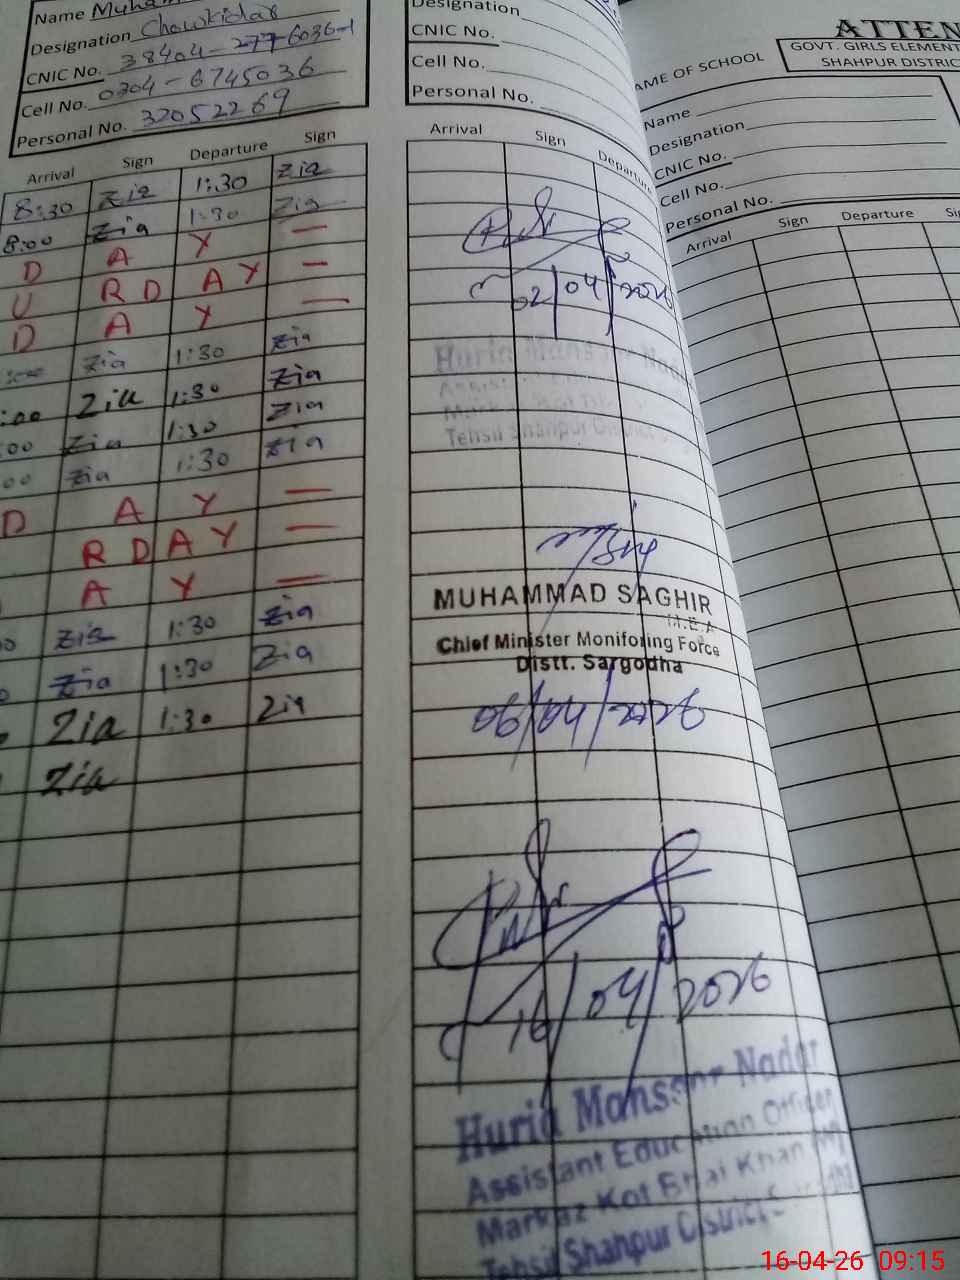 Name Muham
Designation Chowkidar
CNIC No. 38404-277-6036-1
Cell No. 0304-6745036
Personal No. 32052269
Arrival Sign Departure Sign
8:30 Zia 1:30 Zia
8:00 Zia 1:30 Zia
D A Y —
U R D A Y —
D A Y —
Zia 1:30 Zia
:00 Zia 1:30 Zia
:00 Zia 1:30 Zia
00 Zia 1:30 Zia
D A Y —
R D A Y —
A Y —
0 Zia 1:30 Zia
Zia 1:30 Zia
Zia 1:30 Zia
Zia
Designation
CNIC No.
Cell No.
Personal No.
Arrival Sign Departure
02/04/2026
Huria Mansoor Nadar
Assistant
Tehsil Shahpur District
MUHAMMAD SAGHIR
M.E.A
Chief Minister Monitoring Force
Distt. Sargodha
06/04/2026
16/04/2026
Huria Mansoor Nadar
Assistant Education Officer
Markaz Kot Bhai Khan (M)
Tehsil Shahpur District
ATTEN
AME OF SCHOOL
GOVT. GIRLS ELEMENT
SHAHPUR DISTRIC
Name
Designation
CNIC No.
Cell No.
Personal No.
Arrival Sign Departure Si
16-04-26 09:15